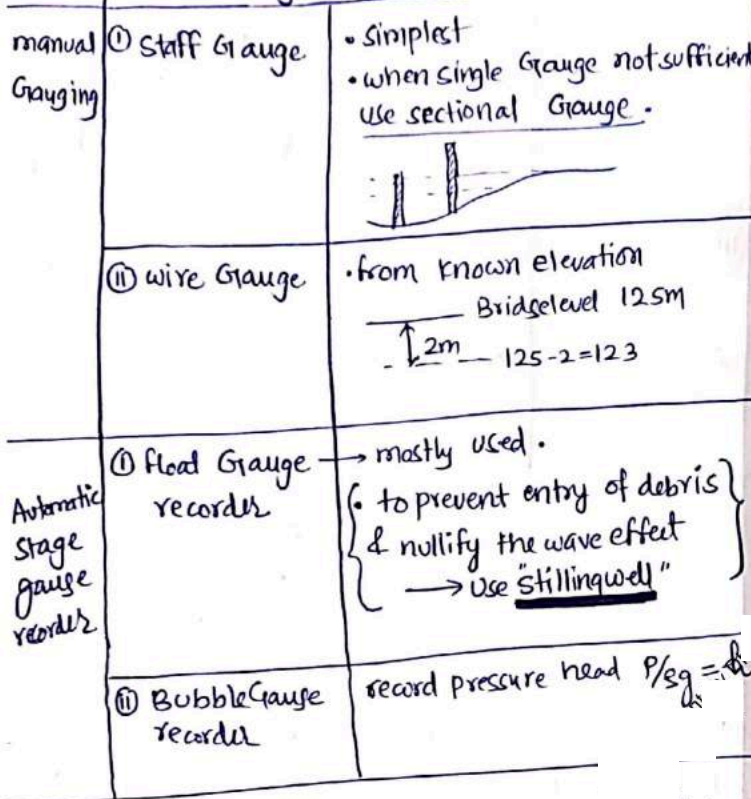 manual Gauging
① Staff Gauge
• simplest
• when single Gauge not sufficient
use sectional Gauge.
⑪ wire Gauge
• from known elevation
Bridgelevel 125m
2m
125-2=123
Automatic stage gauge recorder
① float Gauge recorder
→ mostly used.
• to prevent entry of debris
& nullify the wave effect
→ use "stillingwell"
⑪ Bubble Gauge recorder
record pressure head P/ρg =